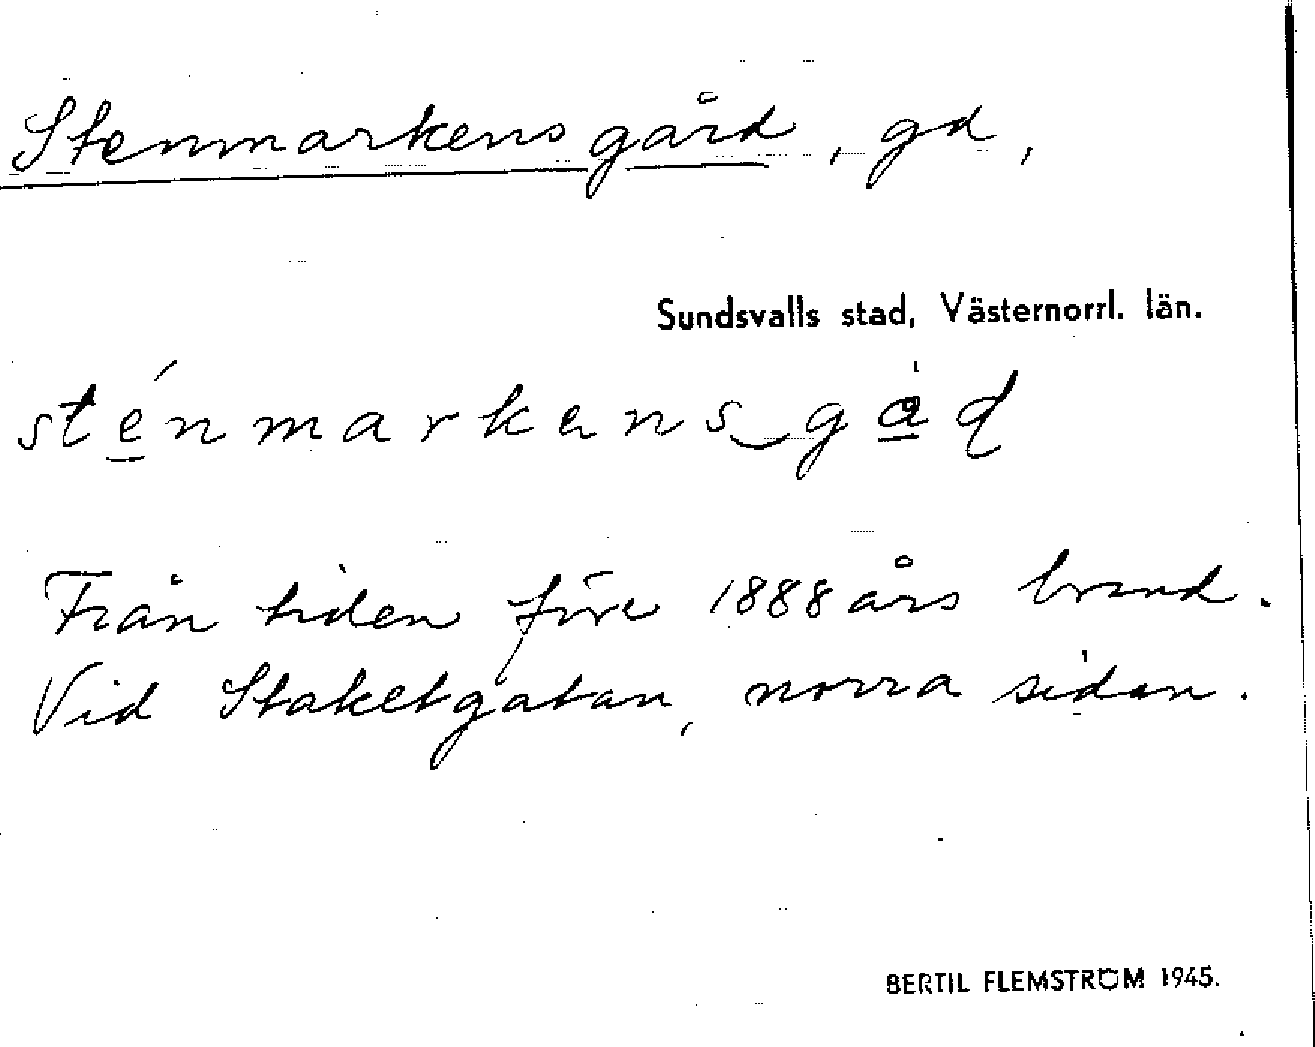 Stenmarkens gård, gd,
Sundsvalls stad, Västernorrl. län.
sténmarkens gåd
Från tiden före 1888 års brand.
Vid Staketgatan, norra sidan.
BERTIL FLEMSTRÖM 1945.